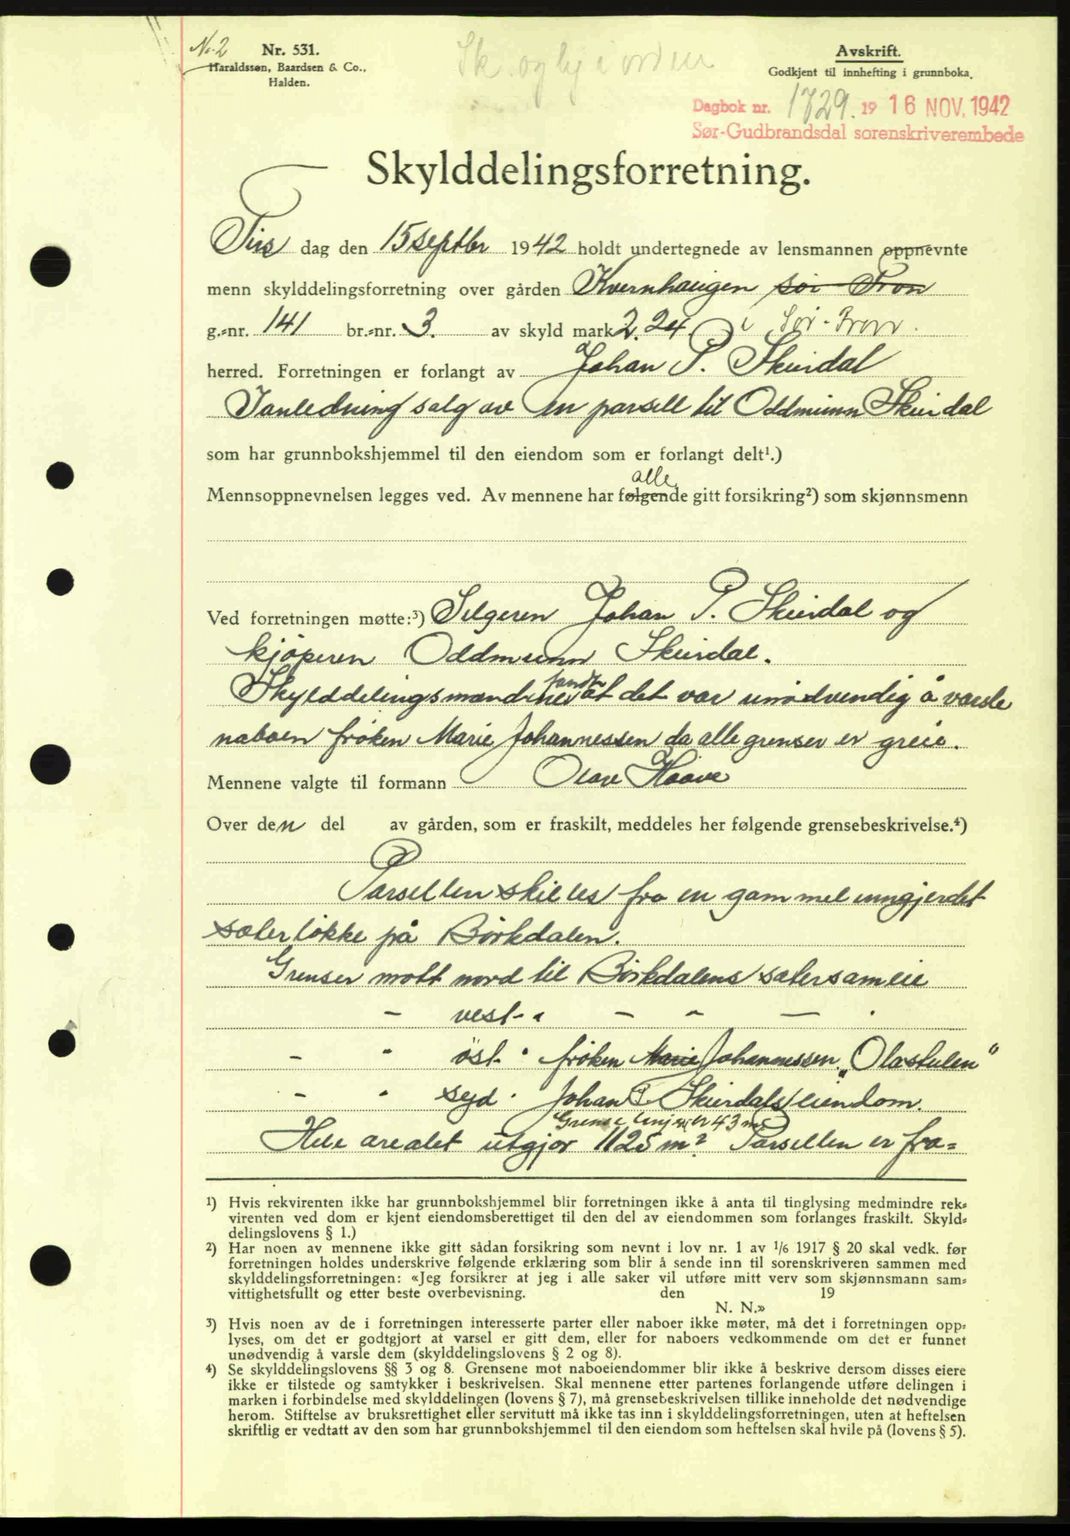 No. 2
Nr. 531.
Haraldssøn, Baardsen & Co.,
Halden.
Sk. og hj i orden
Avskrift.
Godkjent til innhefting i grunnboka.
Dagbok nr. 1729. 19 16 NOV. 1942
Sør-Gudbrandsdal sorenskriverembede
Skylddelingsforretning.
Tirs dag den 15 septbr 1942 holdt undertegnede av lensmannen oppnevnte
menn skylddelingsforretning over gården Kvernhaugen sør Fron
g.-nr. 141 br.-nr. 3. av skyld mark 2.24 i Sør-Fron.
herred. Forretningen er forlangt av Johan P. Skurdal
I anledning salg av en parsell til Oddmunn Skurdal
som har grunnbokshjemmel til den eiendom som er forlangt delt¹.)
alle
Mennsoppnevnelsen legges ved. Av mennene har følgende gitt forsikring²) som skjønnsmenn
Ved forretningen møtte:³) Selgeren Johan P. Skurdal og
kjøperen Oddmunn Skurdal.
fandt
Skylddelingsmændne at det var unødvendig å varsle
naboen frøken Marie Johannessen da alle grenser er greie.
Mennene valgte til formann Olav Haave
Over den del av gården, som er fraskilt, meddeles her følgende grensebeskrivelse.⁴)
Parsellen skilles fra en gammel inngjerdet
sæterløkke på Børkdalen.
Grenser mott nord til Børkdalens sætersameie
- vest - " - " - .
- " øst " frøken Marie Johannessen „Olastulen"
- " syd " Johan P. Skurdals eiendom.
Grense linjen er 43 m
Hele arealet utgjør 1125 m.² Parsellen er fra=
¹) Hvis rekvirenten ikke har grunnbokshjemmel blir forretningen ikke å anta til tinglysing medmindre rek-
virenten ved dom er kjent eiendomsberettiget til den del av eiendommen som forlanges fraskilt. Skyld-
delingslovens § 1.)
²) Har noen av mennene ikke gitt sådan forsikring som nevnt i lov nr. 1 av 1/6 1917 § 20 skal vedk. før
forretningen holdes underskrive følgende erklæring som blir å sende inn til sorenskriveren sammen med
skylddelingsforretningen: «Jeg forsikrer at jeg i alle saker vil utføre mitt verv som skjønnsmann sam-
vittighetsfullt og etter beste overbevisning. den 19
N. N.»
³) Hvis noen av de i forretningen interesserte parter eller naboer ikke møter, må det i forretningen opp-
lyses, om det er godtgjort at varsel er gitt dem, eller for naboers vedkommende om det er funnet
unødvendig å varsle dem (skylddelingslovens § 2 og 8).
⁴) Se skylddelingslovens §§ 3 og 8. Grensene mot naboeiendommer blir ikke å beskrive dersom disses eiere
ikke er tilstede og samtykker i beskrivelsen. Skal mennene etter partenes forlangende utføre delingen i
marken i forbindelse med skylddelingen (lovens § 7), må grensebeskrivelsen tillike inneholde det nødvendige
herom. Stiftelse av bruksrettighet eller servitutt må ikke tas inn i skylddelingsforretningen, uten at heftelsen
skriftlig er vedtatt av den som har grunnbokshjemmel til den eiendom som heftelsen skal hvile på (lovens § 5).